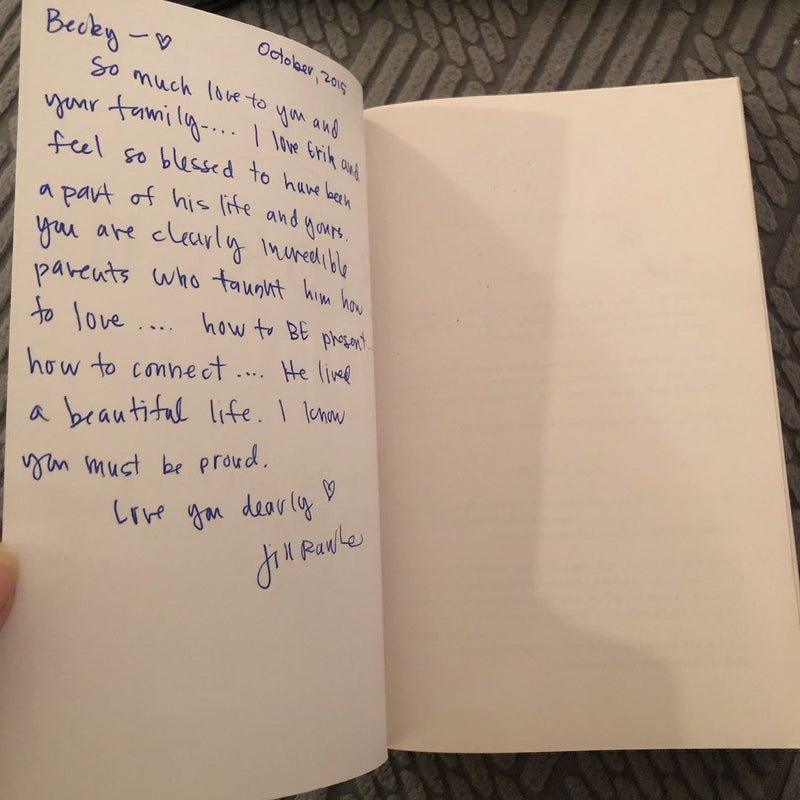 Becky — ♡
October, 2015
So much love to you and
your family-.... I love Erik and
feel so blessed to have been
a part of his life and yours.
You are clearly incredible
parents who taught him how
to love .... how to BE present...
how to connect .... He lived
a beautiful life. I know
you must be proud.
Love you dearly ♡
Jill Rawle